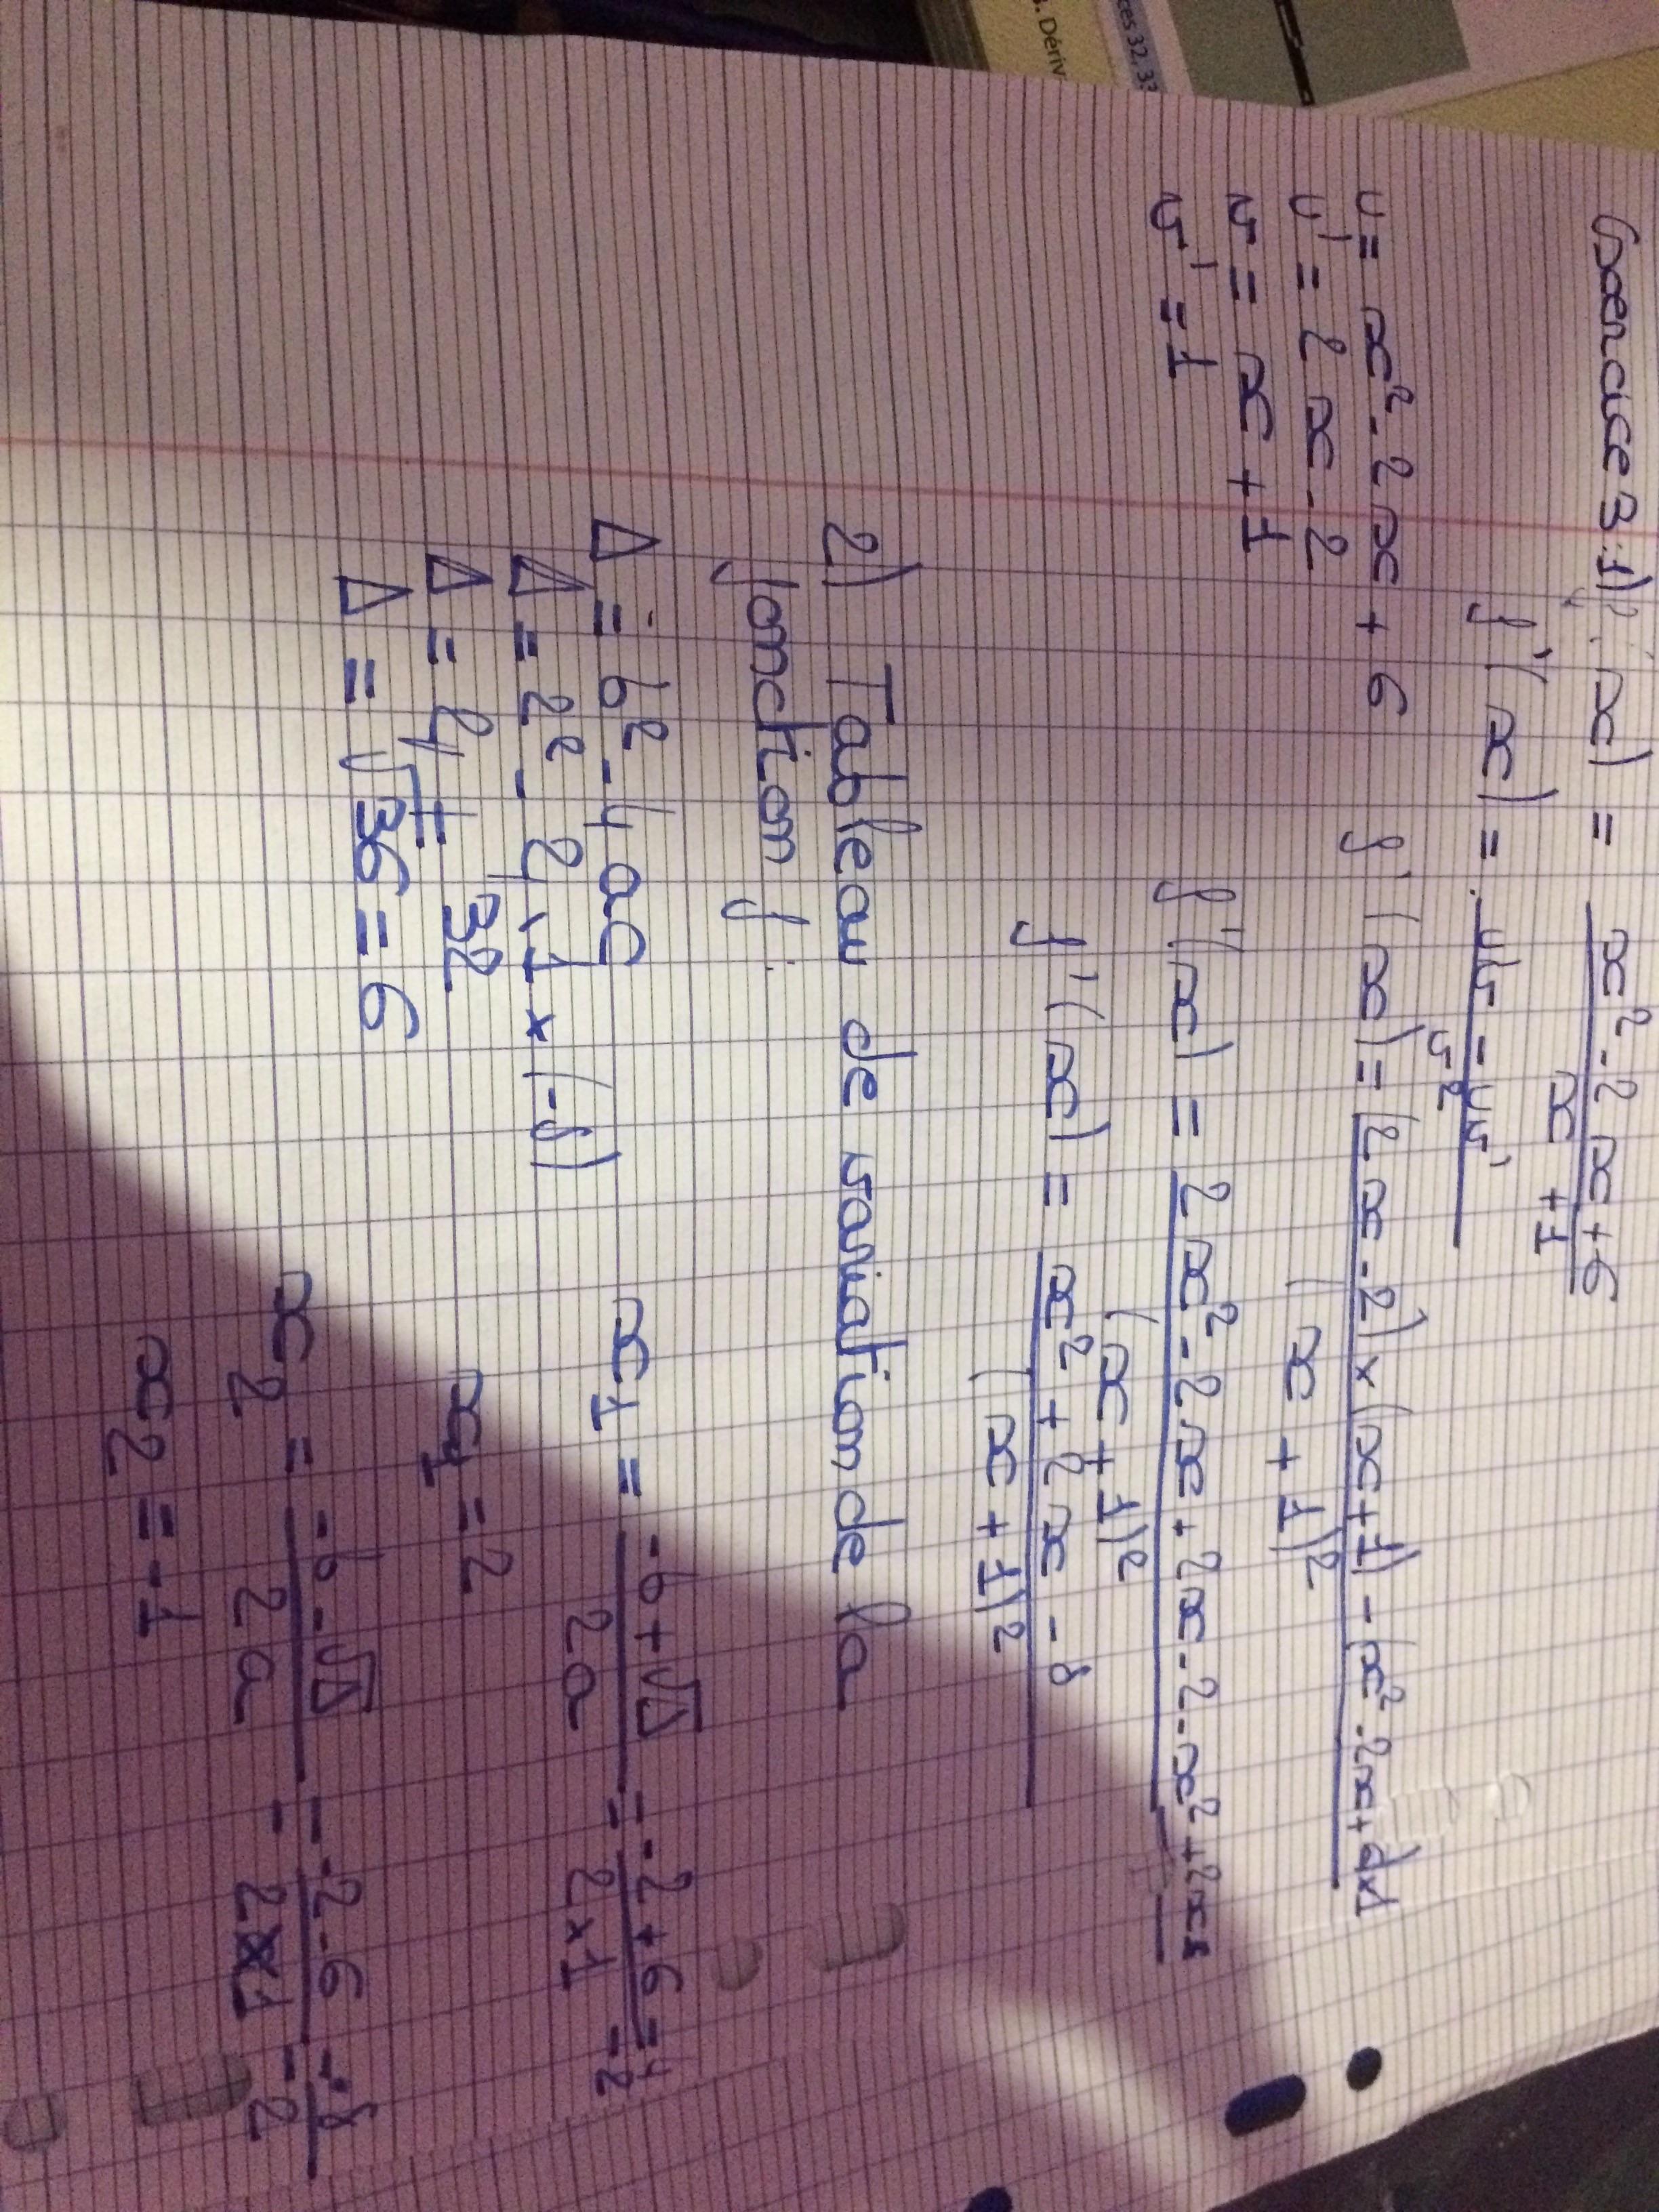 Exercice 3:1) f(x) = x² - 2x + 6 / x + 1
f'(x) = u'v - uv' / v²
u = x² - 2x + 6
u' = 2x - 2
v = x + 1
v' = 1
f'(x) = (2x - 2) × (x + 1) - (x² - 2x + 6) × 1 / (x + 1)²
f'(x) = 2x² - 2x + 2x - 2 - x² + 2x - 8 / (x + 1)²
f'(x) = x² + 2x - 8 / (x + 1)²
2) Tableau de variation de la
fonction f :
Δ = b² - 4ac
Δ = 2² - 4 × 1 × (-8)
Δ = 4 + 32
Δ = √36 = 6
x1 = -b + √Δ / 2a = -2 + 6 / 2 × 1 = 4 / 2
x1 = 2
x2 = -b - √Δ / 2a = -2 - 6 / 2 × 1 = -8 / 2
x2 = -1
ces 32, 33
3. Dériv